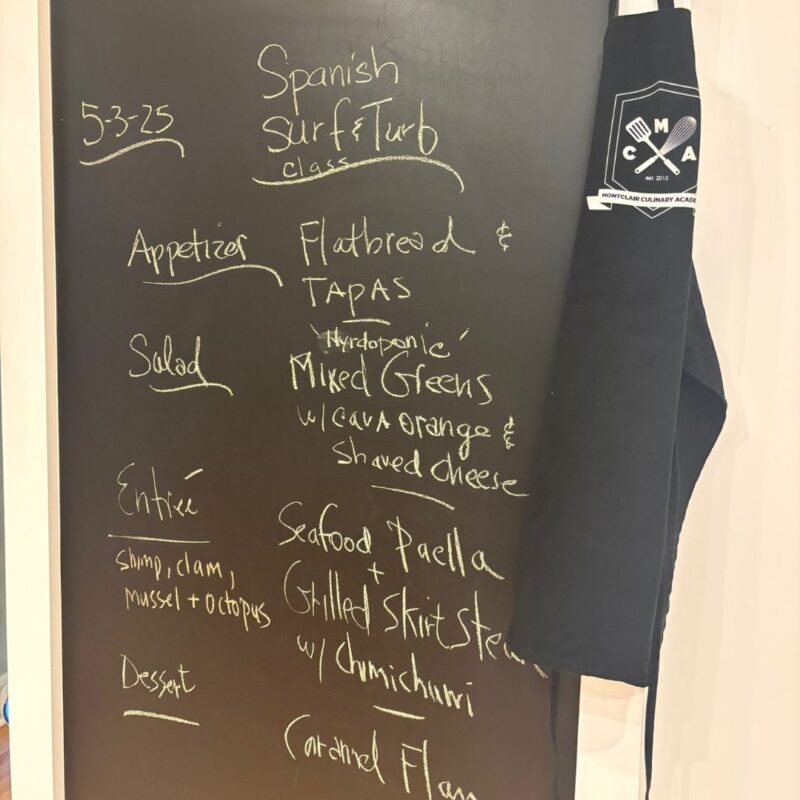 Spanish
5-3-25
Surf & Turb
class
Appetizer
Flatbread &
TAPAS
"Hyrdoponic"
Salad
Mixed Greens
w/ CAVA orange &
Shaved cheese
Entrée
Seafood Paella
+
shimp, clam,
mussel + octopus
Grilled Skirt
w/ Chimichurri
Dessert
Caramel Flan
C M A
est. 2015
MONTCLAIR CULINARY